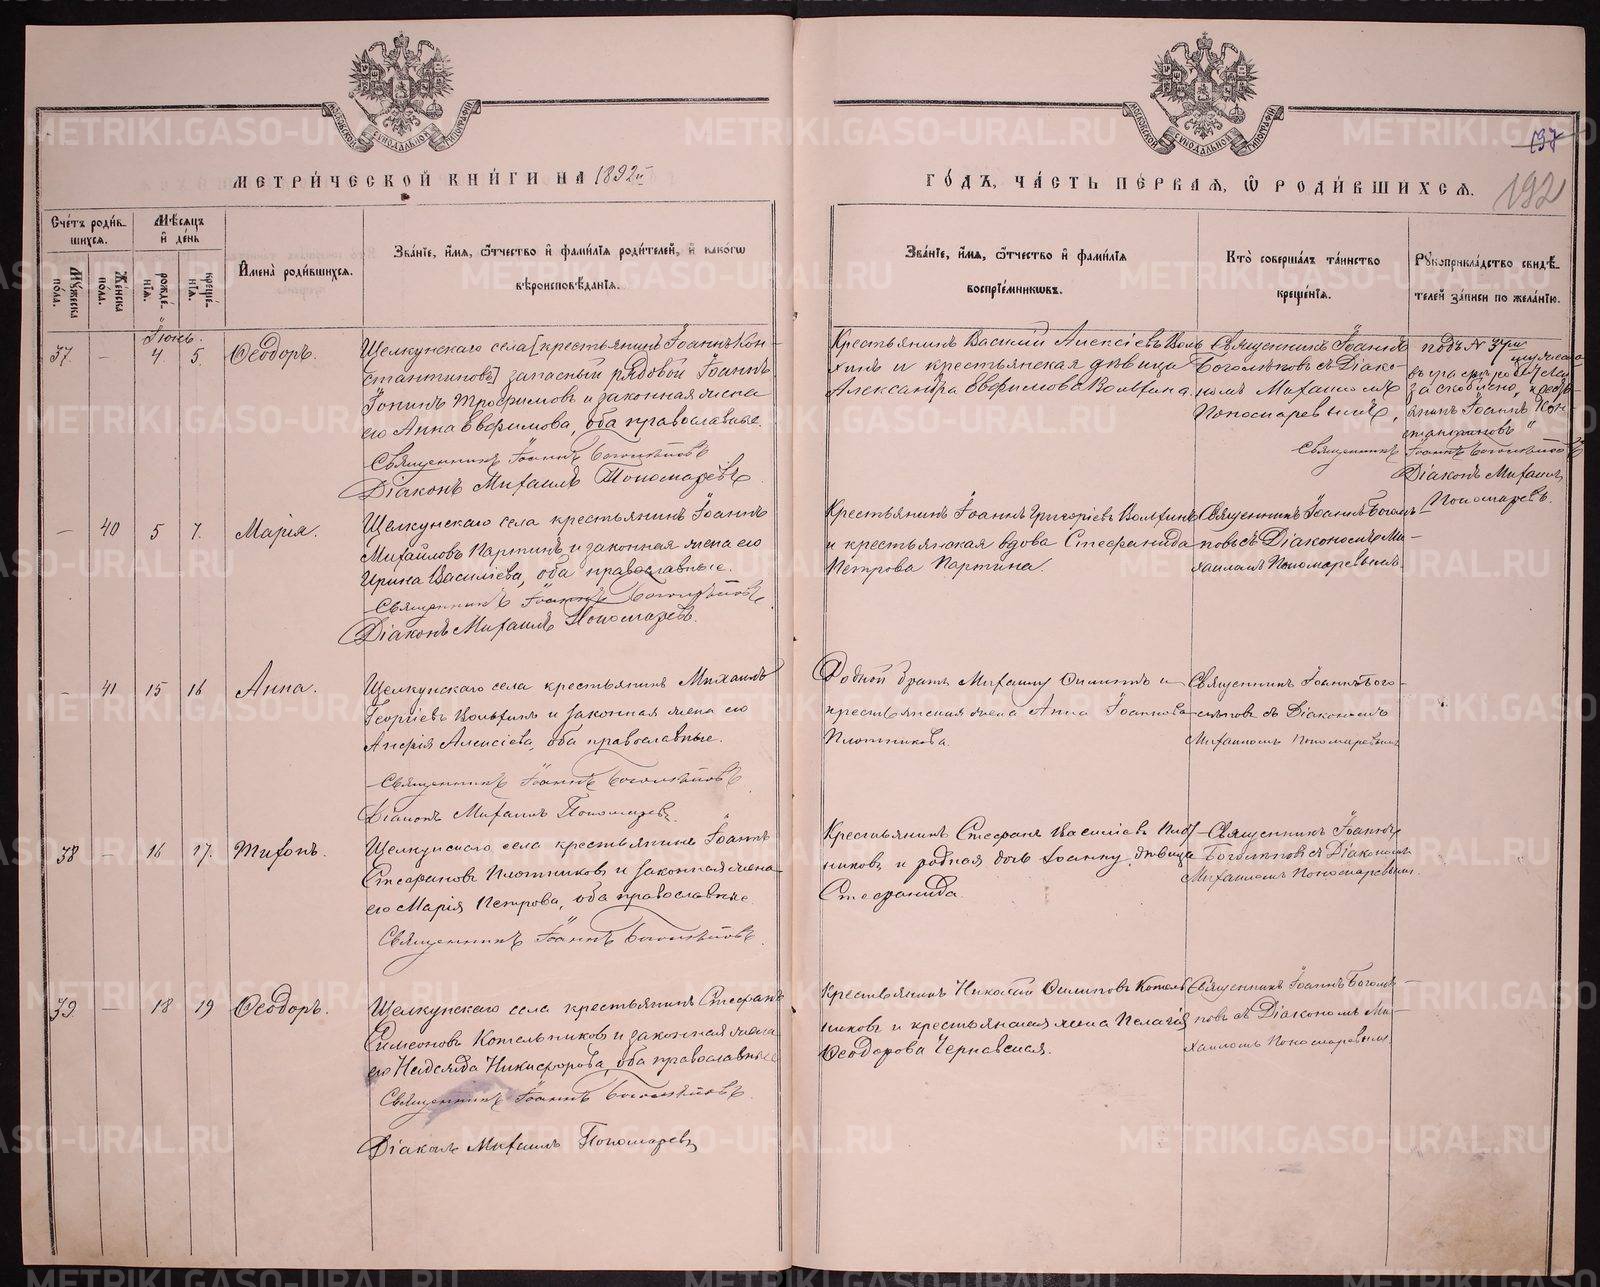 МЕТРИ́ЧЕСКОЙ КНИ́ГИ НА 1892й
ГО́ДЪ, ЧА́СТЬ ПЕ́РВАЯ, Ѡ РОДИ́ВШИХСЯ.
137
192
Сче́тъ роди́в-
шихся.
Му́жеска по́ла.
Же́нска по́ла.
Мѣ́сяцъ
и҆ де́нь
рожде́-
нїя.
креще́-
нїя.
И҆мена̀ роди́вшихся.
Зва́нїе, и҆́мя, ѻ҆́тчество и҆ фами́лїя роди́телей, и҆ како́гѡ
вѣроисповѣ́данїя.
Зва́нїе, и҆́мя, ѻ҆́тчество и҆ фами́лїя
воспрїе́мникѡвъ.
Кто̀ соверша́лъ та́инство
креще́нїя.
Рꙋкоприкла́дство свидѣ́-
телей за́писи по жела́нїю.
Іюнь.
37
—
4
5.
Ѳеодоръ.
Щелкунскаго села [крестьянинъ Іоаннъ Кон-
стантиновъ] запасный рядовой Іоаннъ
Трофимовъ и законная жена
его Анна Евфимова, оба православные.
Священникъ Іоаннъ Боголѣповъ
Діаконъ Михаилъ Пономаревъ
Крестьянинъ Василій Алексіевъ Воль-
хинъ и крестьянская дѣвица
Александра Евфимова Вольхина.
Священникъ Іоаннъ
Боголѣповъ съ Діако-
номъ Михаиломъ
Пономаревымъ.
подъ № 37
Іоаннъ Кон-
стантиновъ"
Священникъ Іоаннъ Боголѣповъ
Діаконъ Михаилъ
Пономаревъ.
—
40
5
7.
Марія.
Щелкунскаго села крестьянинъ Іоаннъ
Михайловъ Партинъ и законная жена его
Ирина Василіева, оба православные.
Священникъ Іоаннъ Боголѣповъ
Діаконъ Михаилъ Пономаревъ.
Крестьянинъ Іоаннъ Григоріевъ Вольхинъ
и крестьянская вдова Стефанида
Петрова Партина.
Священникъ Іоаннъ Боголѣ-
повъ съ Діакономъ Ми-
хаиломъ Пономаревымъ.
—
41
15
16
Анна.
Щелкунскаго села крестьянинъ Михаилъ
Георгіевъ Вольхинъ и законная жена его
Алексіева, оба православные.
Священникъ Іоаннъ Боголѣповъ
Діаконъ Михаилъ Пономаревъ
Родной братъ Михаилу и
крестьянская жена Анна Іоаннова
Плотникова.
Священникъ Іоаннъ Бого-
лѣповъ съ Діакономъ
Михаиломъ Пономаревымъ
38
—
16
17.
Тихонъ.
Щелкунскаго села крестьянинъ Іоаннъ
Стефановъ Плотниковъ и законная жена
его Марія Петрова, оба православные
Священникъ Іоаннъ Боголѣповъ
Крестьянинъ Стефанъ Василіевъ Плот-
никовъ и родная дочь Іоанну, дѣвица
Стефанида.
Священникъ Іоаннъ
Боголѣповъ съ Діакономъ
Михаиломъ Пономаревымъ.
39
—
18
19
Ѳеодоръ.
Щелкунскаго села крестьянинъ Стефанъ
Симеоновъ Котельниковъ и законная жена
его Надежда Никифорова, оба православные
Священникъ Іоаннъ Боголѣповъ
Діаконъ Михаилъ Пономаревъ
Крестьянинъ Николай Осиповъ Котель-
никовъ и крестьянская жена Пелагія
Ѳеодорова Чернавская.
Священникъ Іоаннъ Боголѣ-
повъ съ Діакономъ Ми-
хаиломъ Пономаревымъ
METRIKI.GASO-URAL.RU